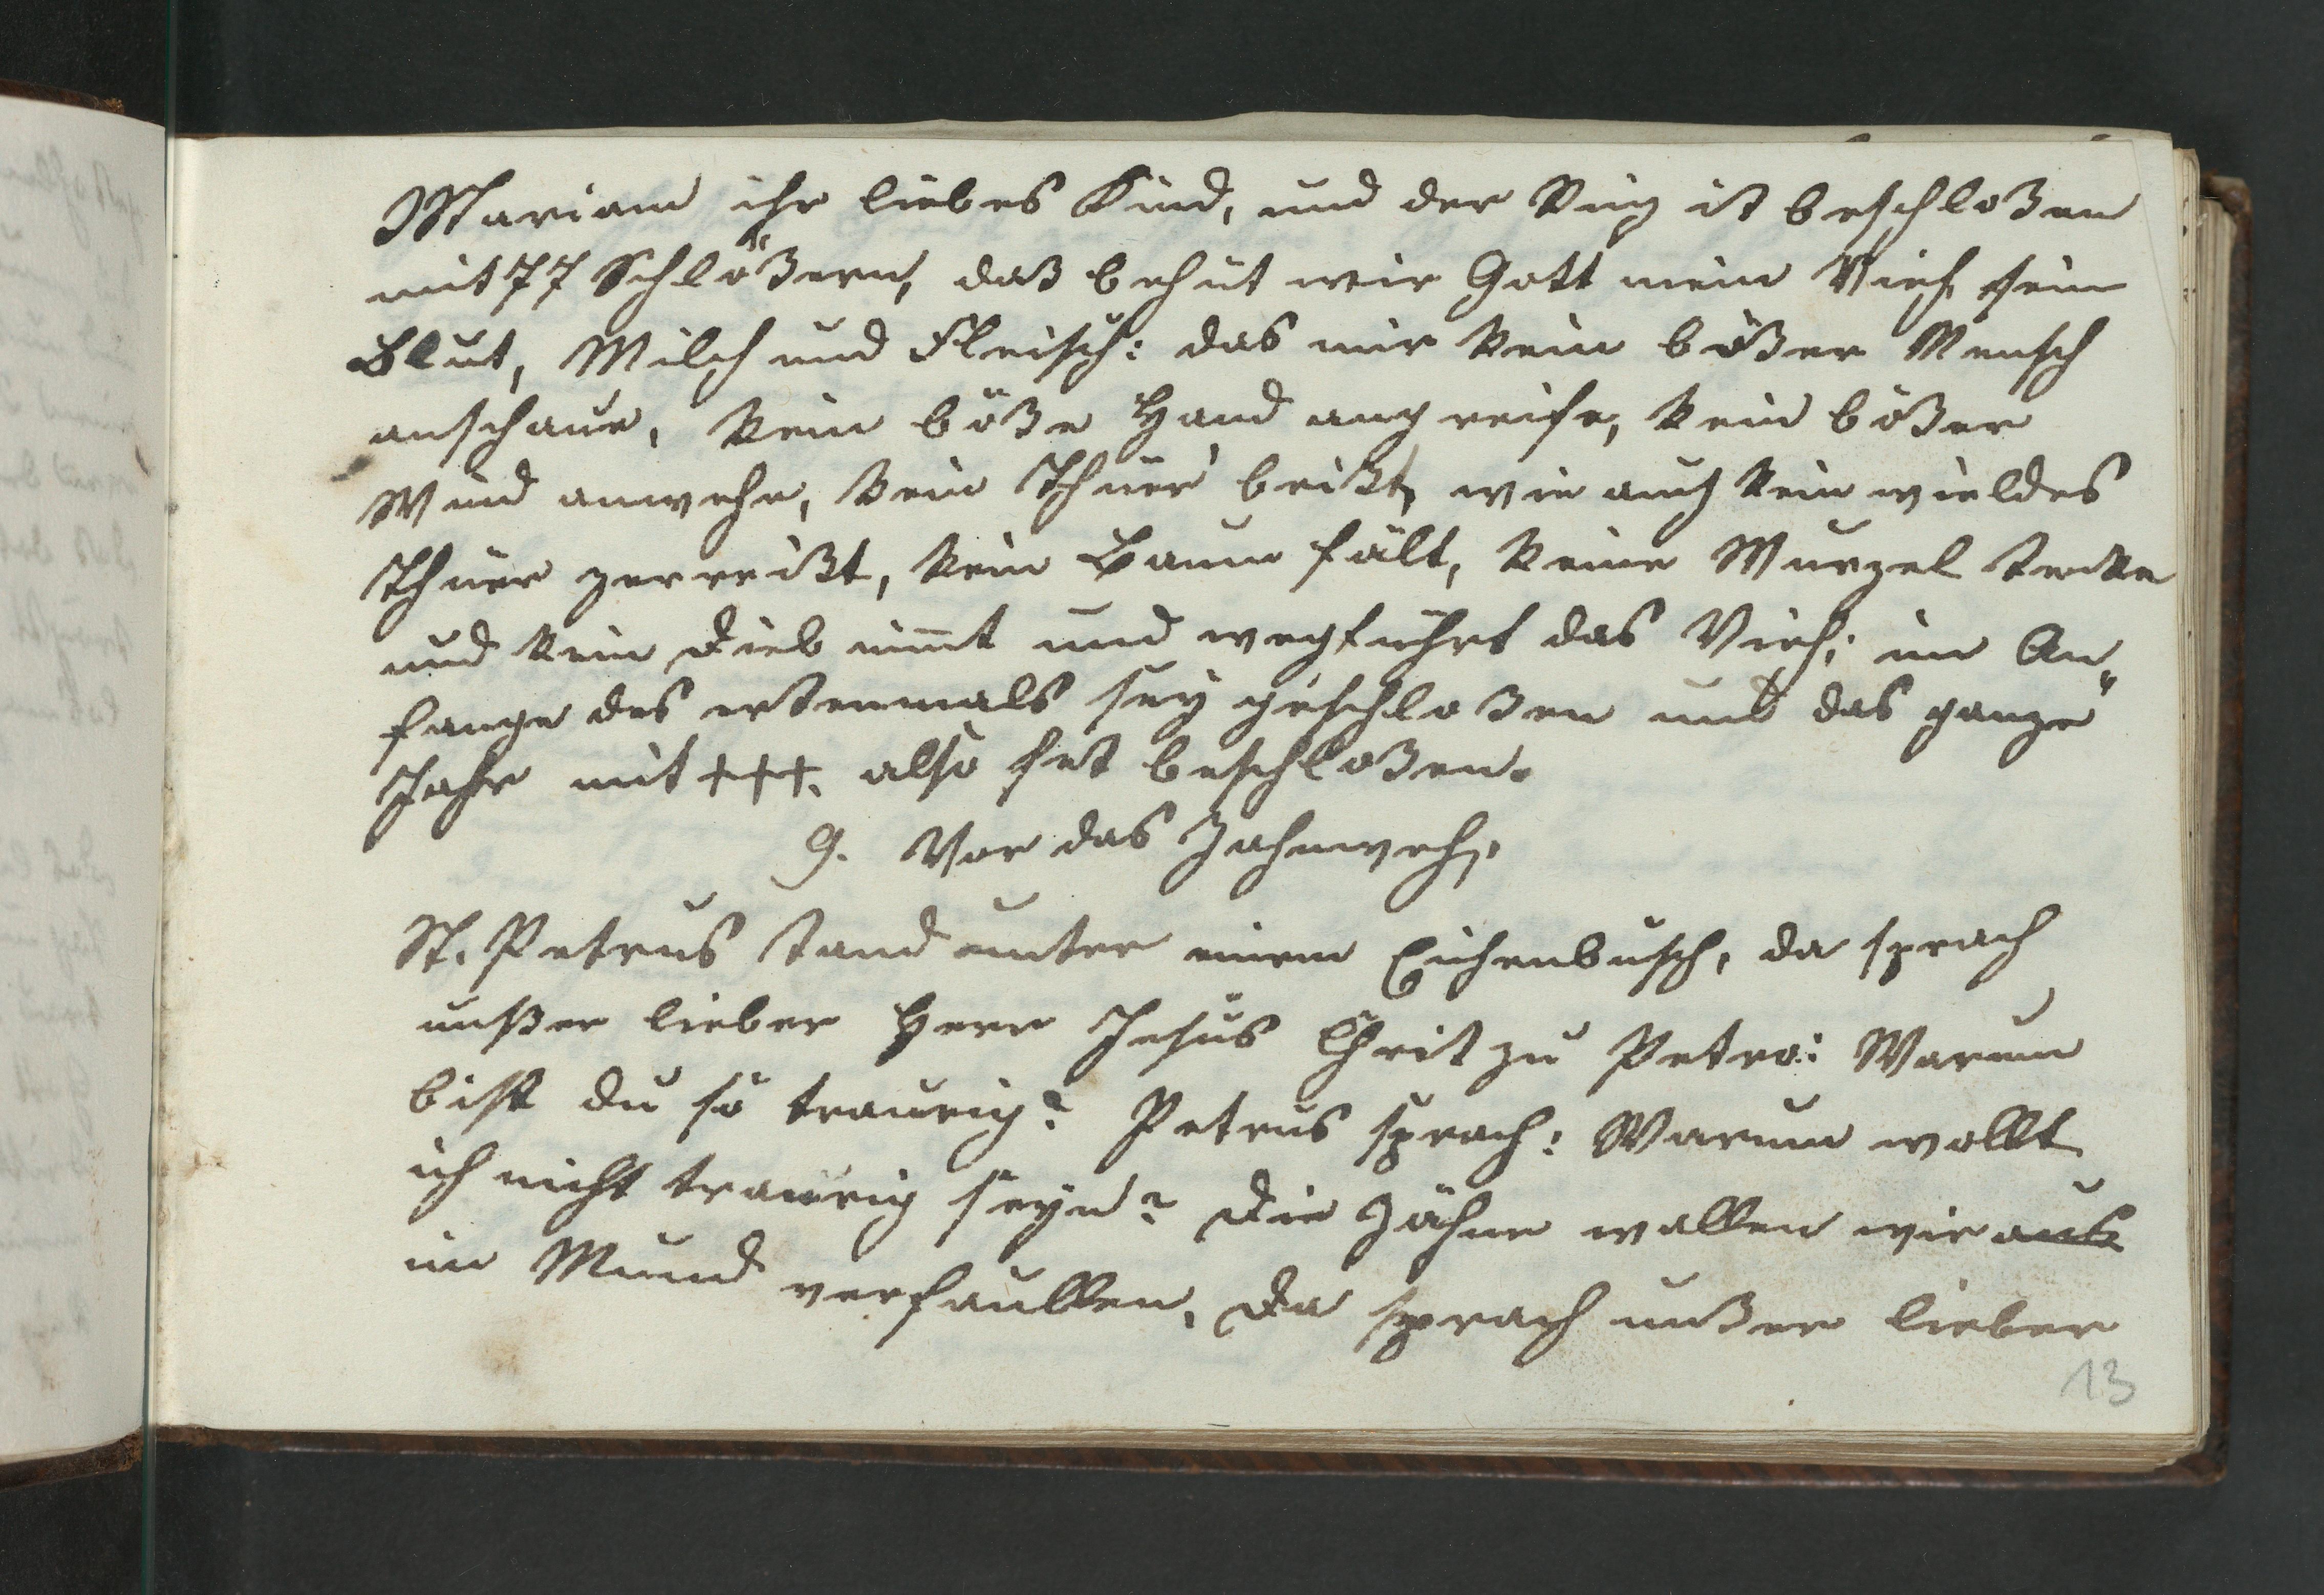 Mariam ihr liebes Kind, und der Ring ist beschloßen
mit 77 Schlößern, daß behüt mir Gott mein Vieh sein
Blut, Milch und Fleisch: das mir kein bößer Mensch
anschaue, kein böße Hand angreife, kein bößer
Wind anwehe, kein Thier beißt, wie auch kein wieldes
Thier zerreißt, kein Baum fält, keine Wurzel stecke
und kein Dieb nimt und wegführt das Vieh; im An„
fange des erstenmals sey geschloßen und das ganze
Jahr mit +++. also fest beschloßen.
9. Vor das Zahnweh.
St. Petrus stand unter einem Eichenbusch, da sprach
unßer lieber Herr Jesus Christ zu Petro: Warum
bist du so traurig? Petrus sprach: Warum wollt
ich nicht traurig seyn? Die Zähne wollen mir aus
im Mund verfaullen. Da sprach unßer lieber
13